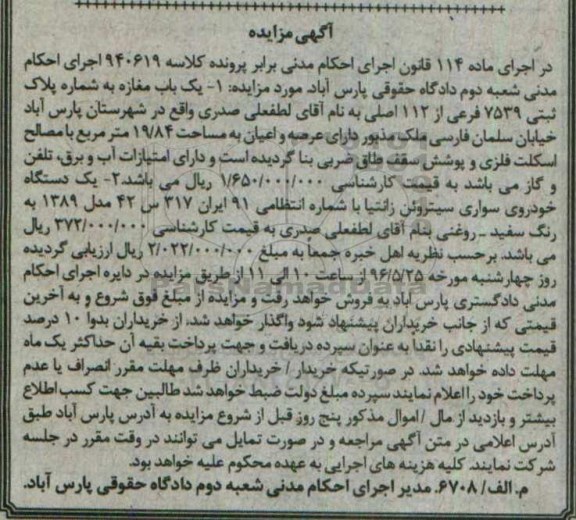 آگهی مزایده
در اجرای ماده ۱۱۴ قانون اجرای احکام مدنی برابر پرونده کلاسه ۹۴۰۶۱۹ اجرای احکام
مدنی شعبه دوم دادگاه حقوقی پارس آباد، مورد مزایده: ۱- یک باب مغازه به شماره پلاک
ثبتی ۷۵۳۹ فرعی از ۱۱۲ اصلی به نام آقای لطفعلی صدری واقع در شهرستان پارس آباد
خیابان سلمان فارسی ملک مذبور دارای عرصه و اعیان به مساحت ۱۹/۸۴ متر مربع با مصالح
اسکلت فلزی و پوشش سقف طاق ضربی بنا گردیده است و دارای امتیازات آب و برق، تلفن
و گاز می باشد به قیمت کارشناسی ۱/۶۵۰/۰۰۰/۰۰۰ ریال می باشد.۲- یک دستگاه
خودروی سواری سیتروئن زانتیا با شماره انتظامی ۹۱ ایران ۳۱۷ س ۴۲ مدل ۱۳۸۹ به
رنگ سفید - روغنی بنام آقای لطفعلی صدری به قیمت کارشناسی ۳۷۲/۰۰۰/۰۰۰ ریال
می باشد. برحسب نظریه اهل خبره جمعاً به مبلغ ۲/۰۲۲/۰۰۰/۰۰۰ ریال ارزیابی گردیده
روز چهارشنبه مورخه ۹۶/۵/۲۵ از ساعت ۱۰ الی ۱۱ از طریق مزایده در دایره اجرای احکام
مدنی دادگستری پارس آباد به فروش خواهد رفت و مزایده از مبلغ فوق شروع و به آخرین
قیمتی که از جانب خریداران پیشنهاد شود واگذار خواهد شد، از خریداران بدوا ۱۰ درصد
قیمت پیشنهادی را نقداً به عنوان سپرده دریافت و جهت پرداخت بقیه آن حداکثر یک ماه
مهلت داده خواهد شد. در صورتیکه خریدار / خریداران ظرف مهلت مقرر انصراف یا عدم
پرداخت خود را اعلام نمایند سپرده مبلغ دولت ضبط خواهد شد طالبین جهت کسب اطلاع
بیشتر و بازدید از مال / اموال مذکور پنج روز قبل از شروع مزایده به آدرس پارس آباد طبق
آدرس اعلامی در متن آگهی مراجعه و در صورت تمایل می توانند در وقت مقرر در جلسه
شرکت نمایند. کلیه هزینه های اجرایی به عهده محکوم علیه خواهد بود.
م. الف/ ۶۷۰۸. مدیر اجرای احکام مدنی شعبه دوم دادگاه حقوقی پارس آباد.